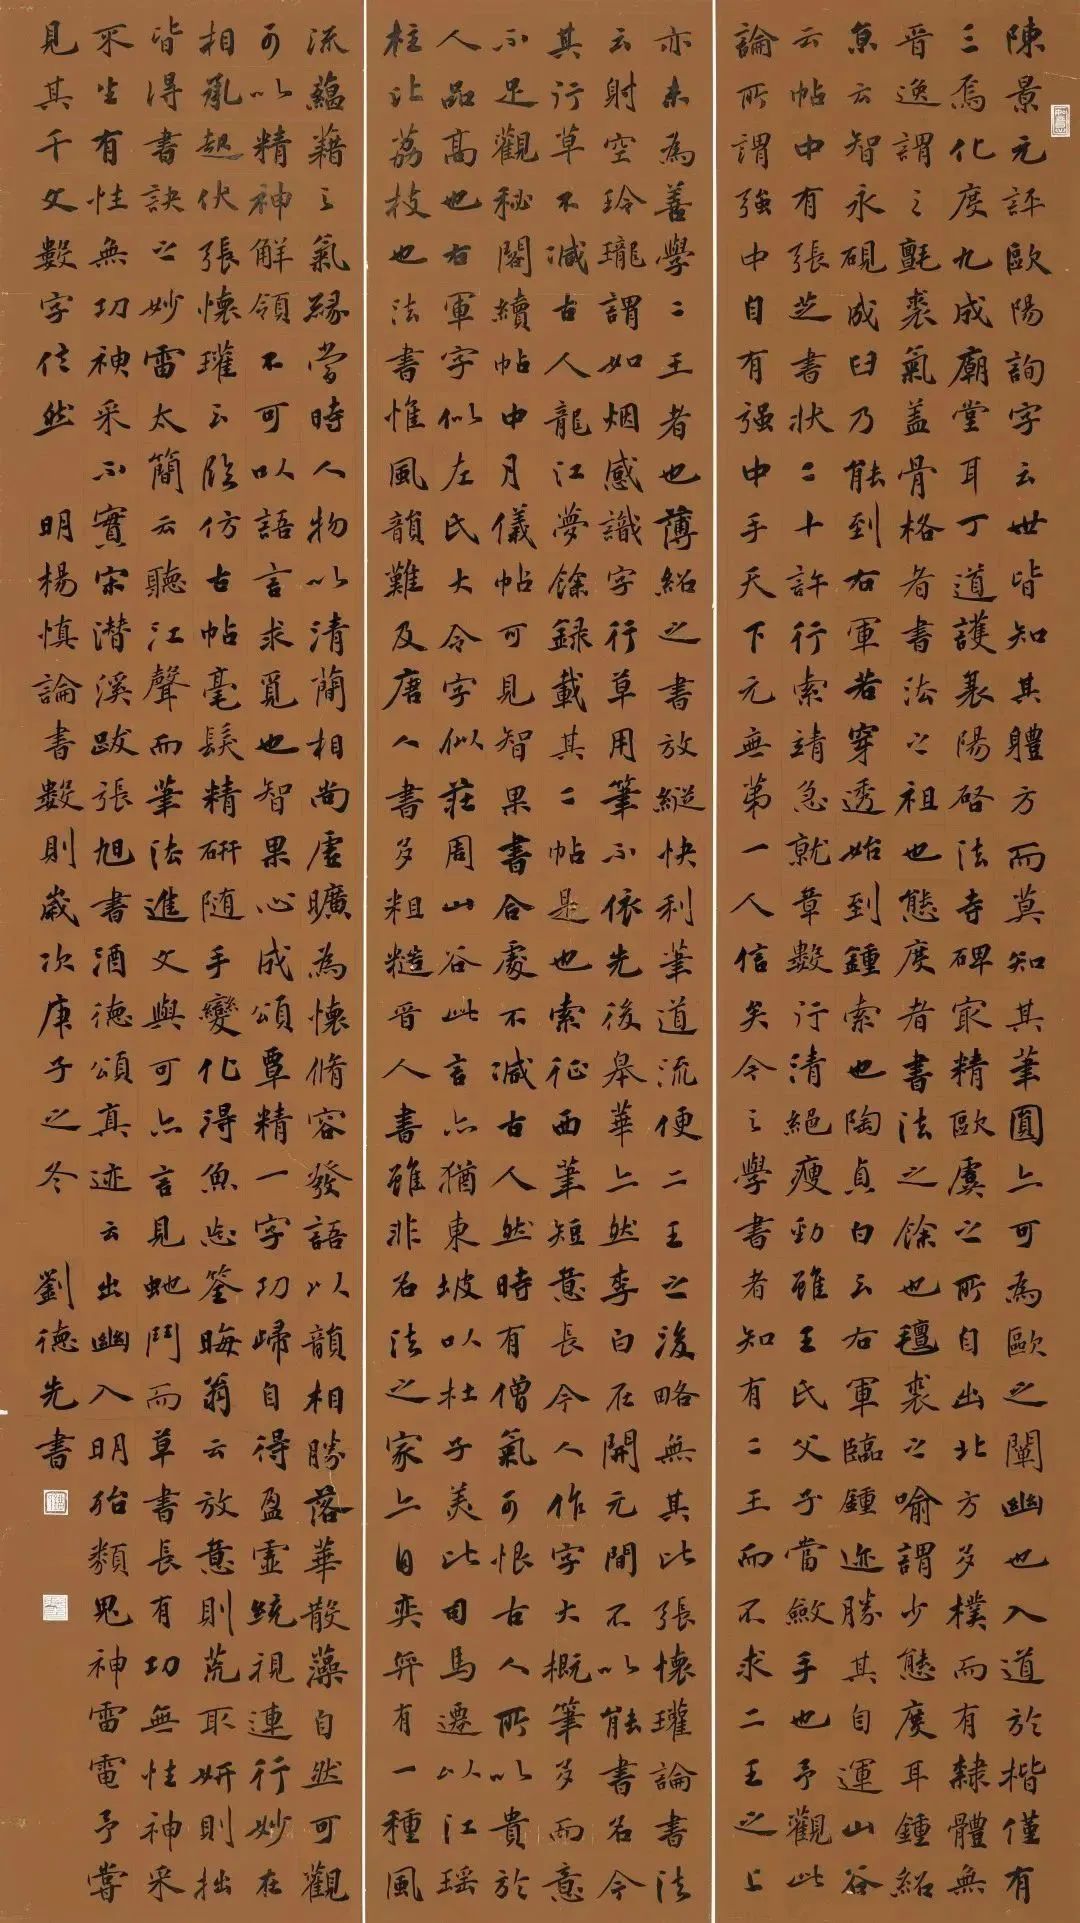 陳景元評歐陽詢字云世皆知其體方而莫知其筆圓亦可為歐之闡幽也入道於楷僅有
三焉化度九成廟堂耳丁道護襄陽啓法寺碑最精歐虞之所自出北方多樸而有隸體無
晉逸謂之氈裘氣蓋骨格者書法之祖也態度者書法之餘也氊裘之喻謂少態度耳鍾紹
魚云智永硯成臼乃能到右軍若穿透始到鍾索也陶貞白云右軍臨鍾迹勝其自運山谷
云帖中有張芝書狀二十許行索靖急就章數行清絕瘦勁雖王氏父子當斂手也予觀此
論所謂強中自有强中手天下元無第一人信矣今之學書者知有二王而不求二王之上
亦未為善學二王者也薄紹之書放縱快利筆道流便二王之後略無其比張懷瓘論書法
云射空玲瓏謂如烟感識字行草用筆不依先後畢華亦然李白在開元間不以能書名今
其行草不減古人龍江夢餘録載其二帖是也索征西筆短意長今人作字大概筆多而意
不足觀秘閣續帖中月儀帖可見智果書合處不減古人然時有僧氣可恨古人所以貴於
人品高也右軍字似左氏大令字似莊周山谷此言亦猶東坡以杜子美比司馬遷以江瑶
柱比荔枝也法書惟風韻難及唐人書多粗糙晉人書雖非名法之家亦自奕奕有一種風
流蘊藉之氣緣當時人物以清簡相尚虛曠為懷脩容發語以韻相勝落華散藻自然可觀
可以精神解領不可以語言求覓也智果心成頌覃精一字功歸自得盈虛統視連行妙在
相承起伏張懷瓘云臨仿古帖毫髮精研随手變化得魚忘筌晦翁云放意則荒取妍則拙
皆得書訣之妙雷太簡云聽江聲而筆法進文與可亦言見虵鬥而草書長有功無性神采
不生有性無功神采不實宋潛溪跋張旭書酒德頌真迹云出幽入明殆類鬼神雷電予嘗
見其千文數字信然　明楊慎論書數則歲次庚子之冬　劉德先書